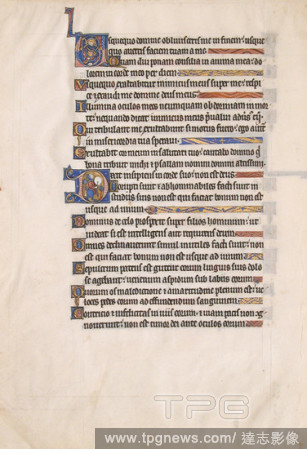 squequo domine obliuisceris me in finem: usquequo
quo auertis faciem tuam a me
Quam diu ponam consilia in anima mea: do
lorem in corde meo per diem
Usquequo exaltabitur inimicus meus super me: respi
ce exaudi me domine deus meus
Illumina oculos meos ne umquam obdormiam in mor
te: nequando dicat inimicus meus preualui aduersus eum
Qui tribulant me exultabunt si motus fuero: ego autem
in misericordia tua speraui
Exultabit cor meum in salutari tuo: cantabo domino qui
bona tribuit michi: psallam nomini domini altissimi
Dixit insipiens in corde suo: non est deus
Corrupti sunt abhominabiles facti sunt in
studiis suis: non est qui faciat bonum non est
usque ad unum
Dominus de celo prospexit super filios hominum: ut
uideat si est intelligens aut requirens deum
Omnes declinauerunt simul inutiles facti sunt: non
est qui faciat bonum non est usque ad unum
Sepulcrum patens est guttur eorum linguis suis dolo
se agebant: uenenum aspidum sub labiis eorum
Quorum os maledictione amaritudine plenum est: ue
loces pedes eorum ad effundendum sanguinem
Contricio infelicitas in uiis eorum: uiam pacis non co
nouerunt: non est timor dei ante oculos eorum
TPG
www.tpgnews.com/達志影像